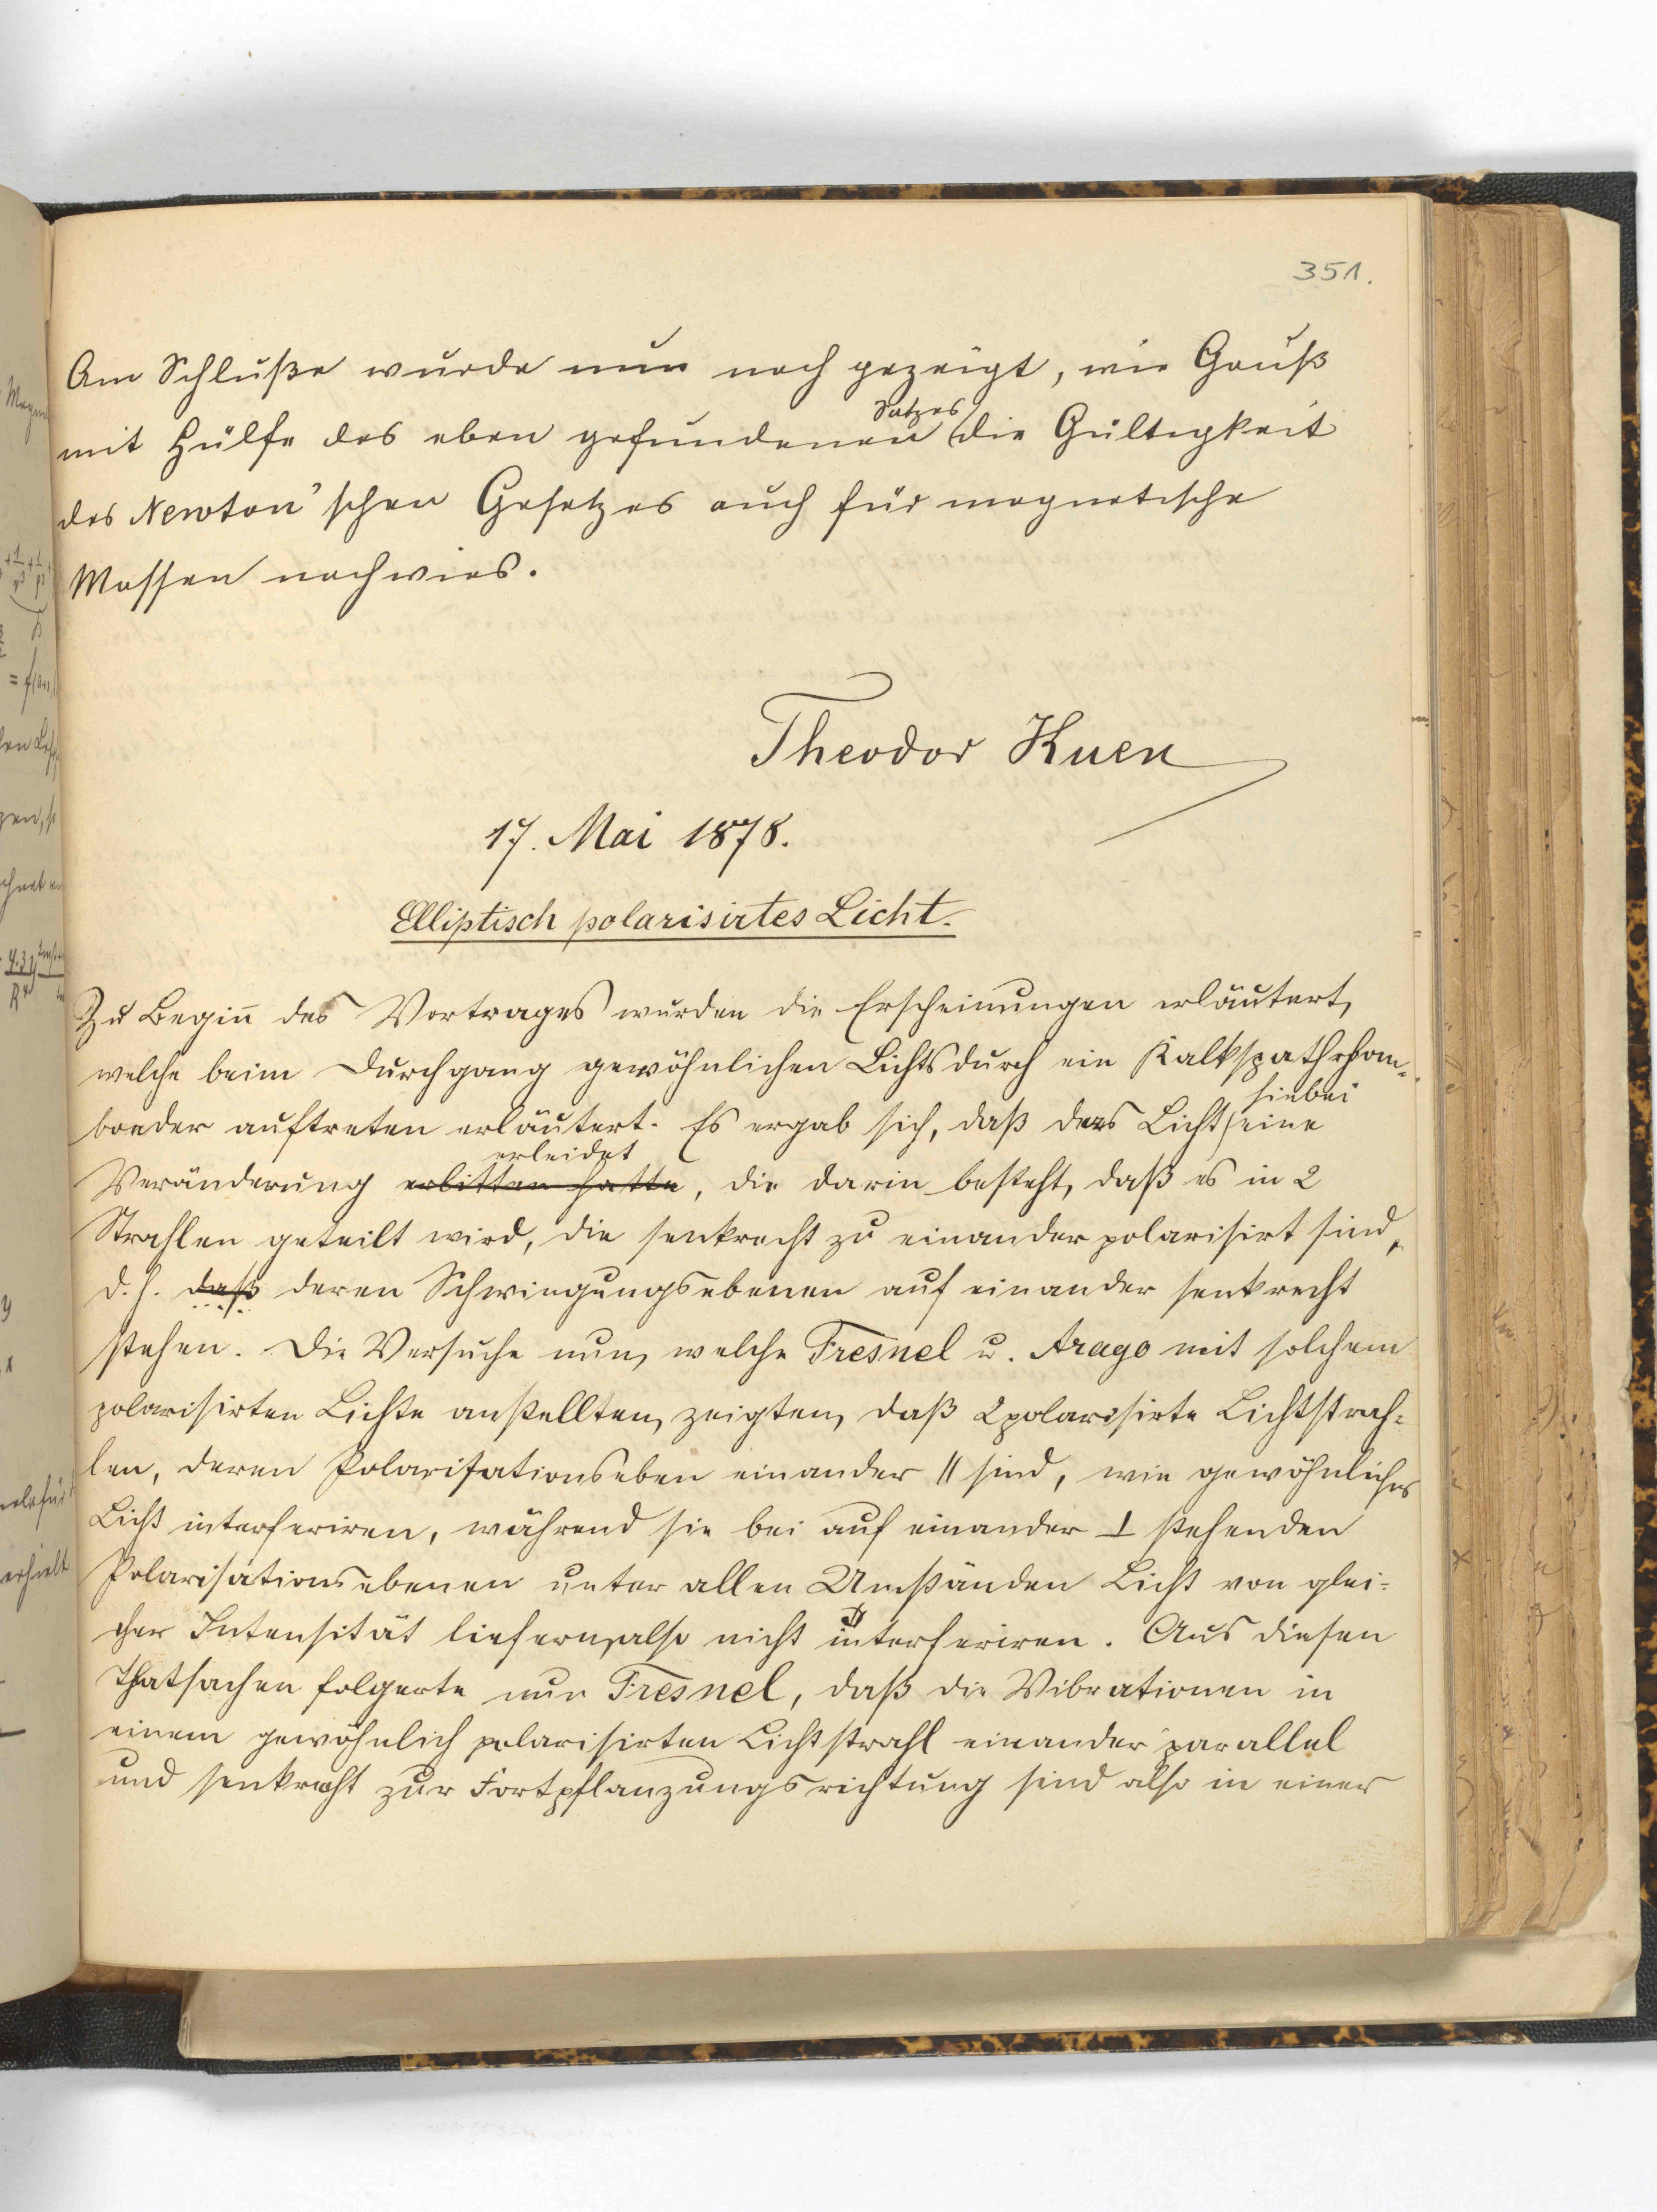 351.
Am Schluße wurde nun noch gezeigt, wie Gauß
Satzes
mit Hülfe des eben gefundenen die Gültigkeit
des Newton'schen Gesetzes auch für magnetische
Massen nachwies.
Theodor Kuen
17. Mai 1878.
Elliptisch polarisirtes Licht.
Zu Begin̄ des Vortrages wurden die Erscheinungen erläutert,
welche beim Durchgang gewöhnlichen Lichts durch ein Kalkspathrhom-
hiebei
boeder auftreten erläutert. Es ergab sich, daß das Licht eine
erleidet
Veränderung erlitten hatte, die darin besteht, daß es in 2
Strahlen geteilt wird, die senkrecht zu einander polarisirt sind,
d. h. daß deren Schwingungsebenen auf einander senkrecht
stehen. Die Versuche nun, welche Fresnel u. Arago mit solchem
polarisirten Lichte anstellten, zeigten, daß 2 polarisirte Lichtstrah-
len, deren Polarisationseben einander || sind, wie gewöhnliches
Licht interferiren, während sie bei auf einander ⊥ stehenden
Polarisationsebenen unter allen Umständen Licht von glei-
cher Intensität liefern, also nicht interferiren. Aus diesen
Thatsachen folgerte nun Fresnel, daß die Vibrationen in
einem gewöhnlich polarisirten Lichtstrahl einander parallel
und senkrecht zur Fortpflanzungsrichtung sind also in einer